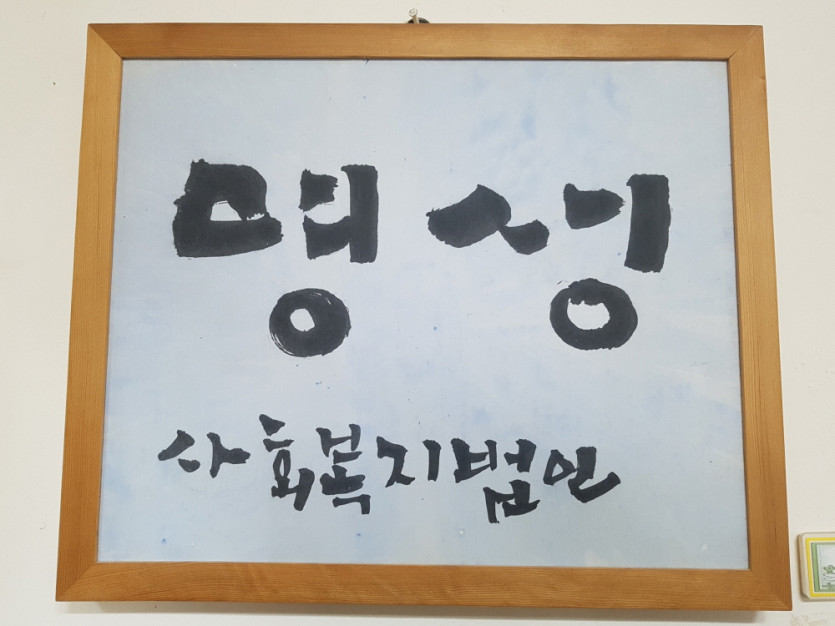 명성
사회복지법인